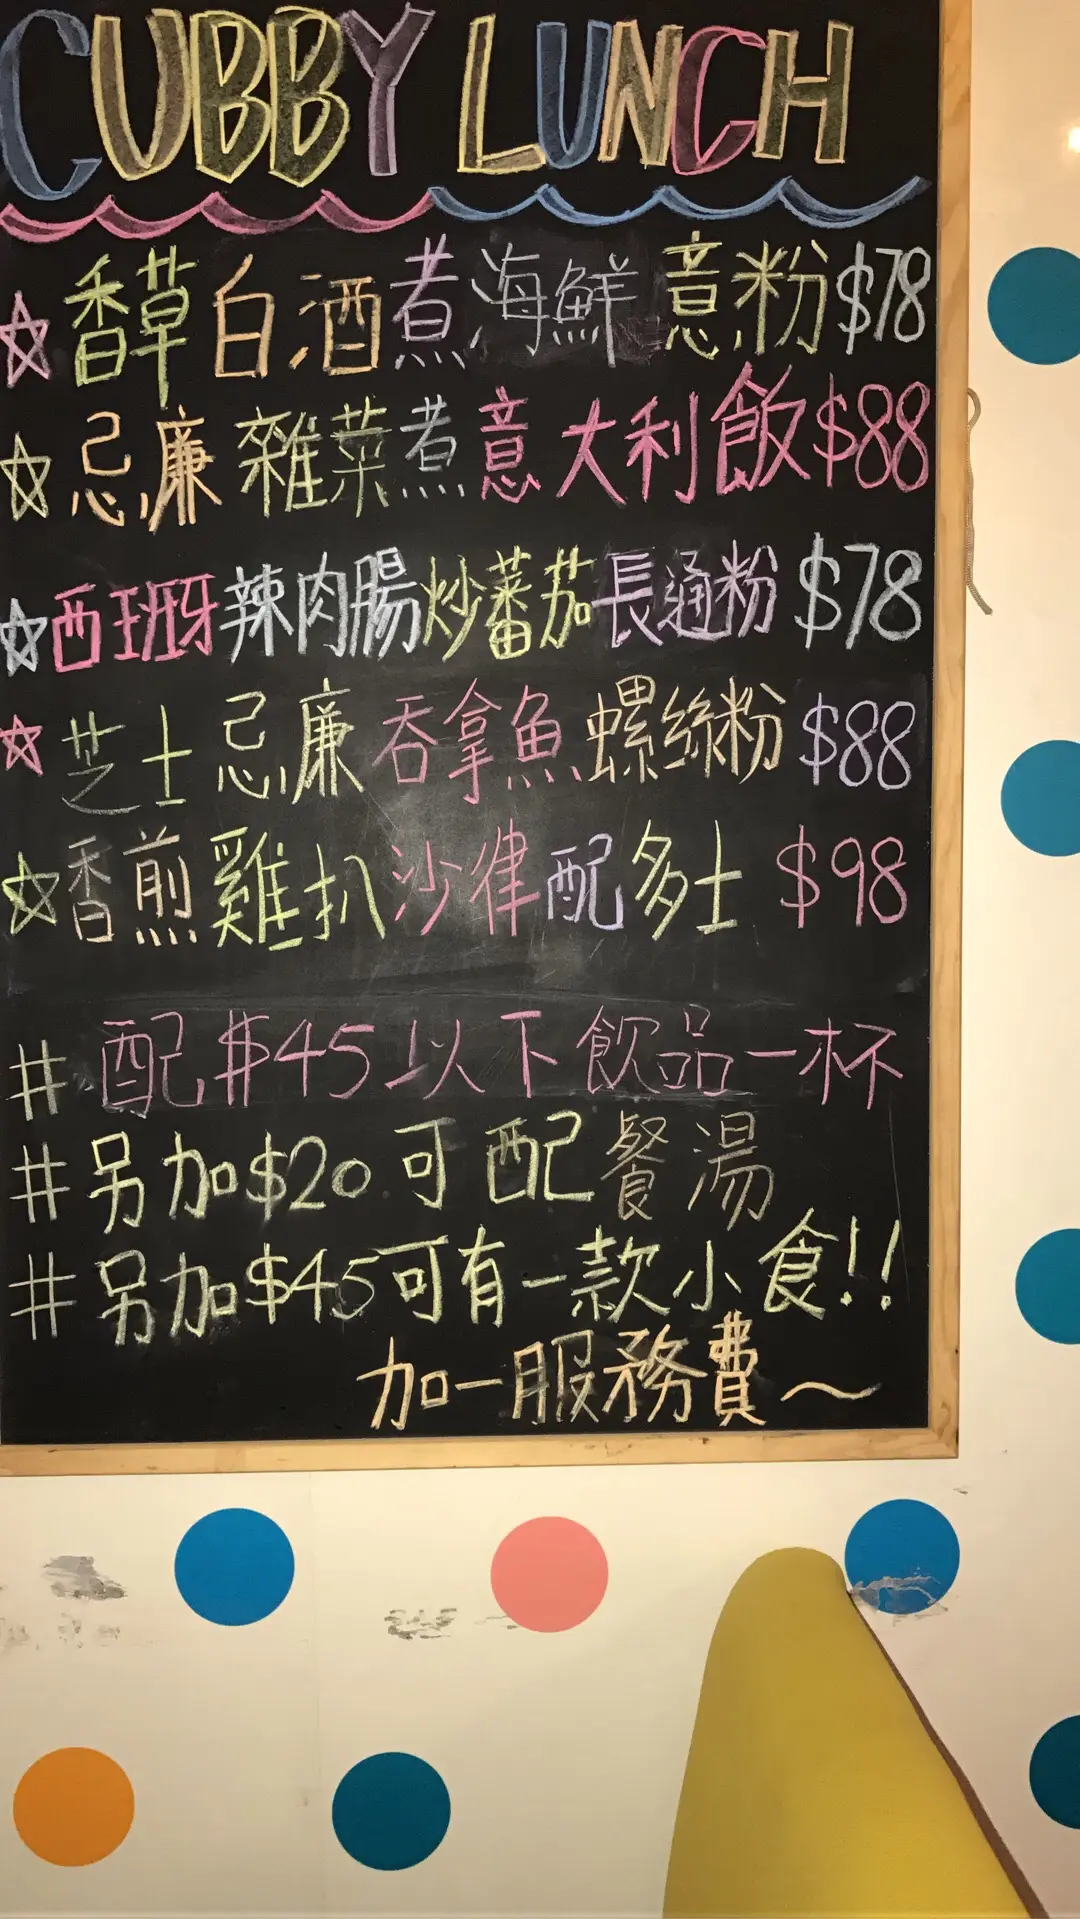 CUBBY LUNCH
☆香草白酒煮海鮮意粉$78
☆忌廉雜菜煮意大利飯$88
☆西班牙辣肉腸炒蕃茄長通粉$78
☆芝士忌廉吞拿魚螺絲粉$88
☆香煎雞扒沙律配多士$98
# 配$45以下飲品一杯
# 另加$20可配餐湯
# 另加$45可有一款小食!!
加一服務費~